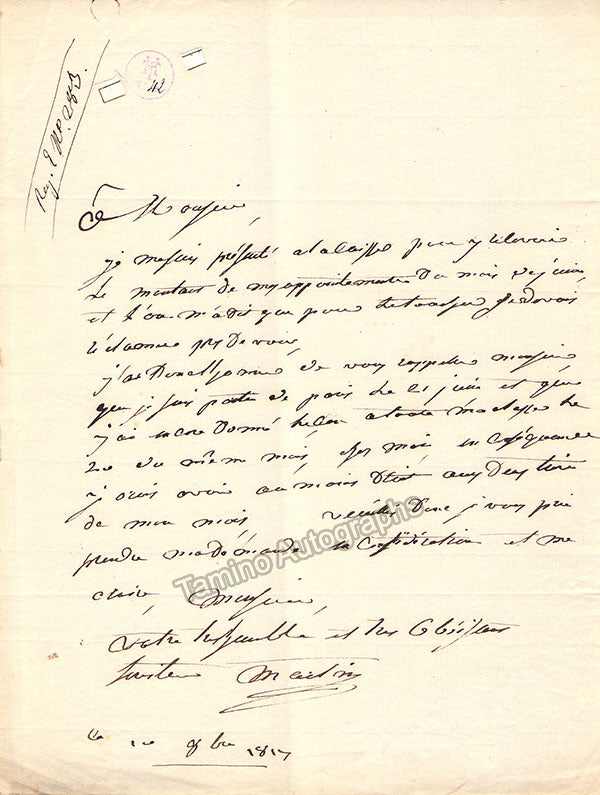 Reg. E N° 2803.
42
Monsieur,
je me suis présenté a la Caisse pour y recevoir
le montant de mes appointements du mois de juin
et l'on m'a dit que pour le toucher je devois
réclamer près de vous,
j'ai donc l'honneur de vous rappeler monsieur
que je suis partie de paris le 21 juin et que
j'ai encore donné
20 du même mois, en conséquence
je crois avoir au moins droit aux deux tiers
de mon mois veuillez donc je vous prie
prendre ma demande en Considération et me
croire, Monsieur,
votre très humble et très obéissant
serviteur Martin
Tamino Autographs
Ce 10 8bre 1817